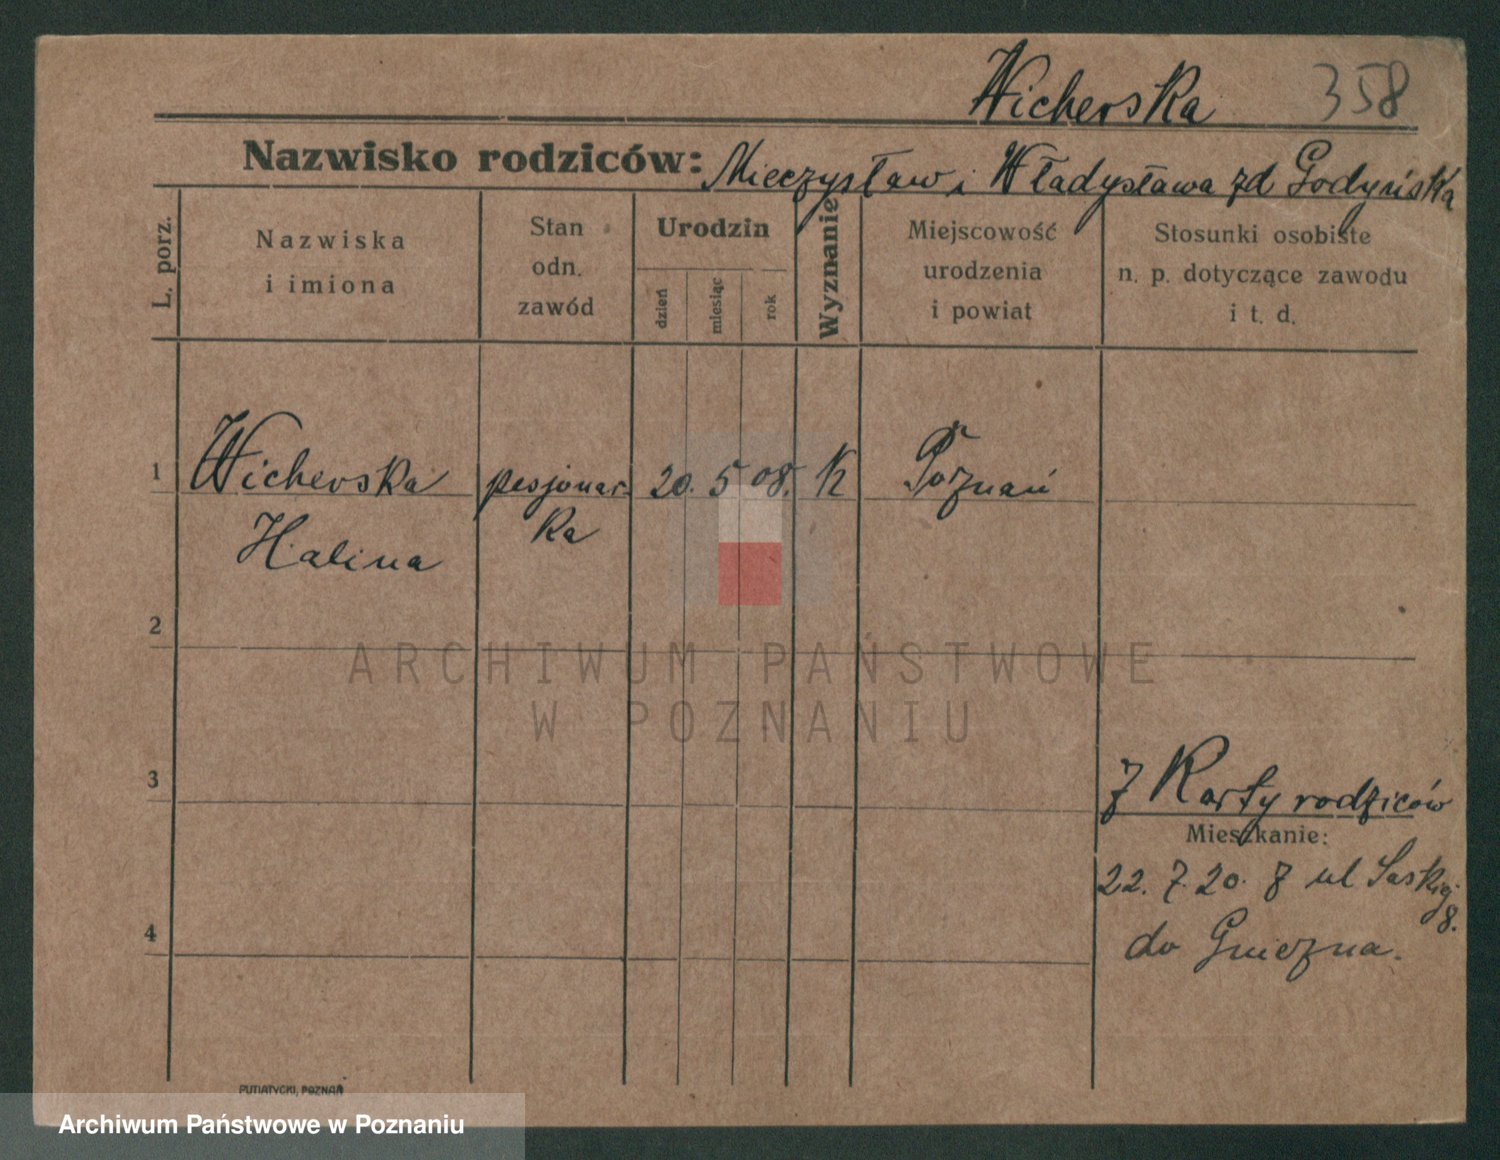 Wicherska 358
Nazwisko rodziców: Mieczysław i Władysława zd Godyńska
L. porz.
Nazwiska
i imiona
Stan
odn.
zawód
Urodzin
dzień
miesiąc
rok
Wyznanie
Miejscowość
urodzenia
i powiat
Stosunki osobiste
n. p. dotyczące zawodu
i t. d.
1 Wicherska pesjonar- 20. 5 08. K Poznań
Halina ka
2
ARCHIWUM PAŃSTWOWE
W POZNANIU
3
z Karty rodziców
Mieszkanie:
22. 7. 20. z ul Saskiej
8.
4
do Gniezna.
PUTIATYCKI, POZNAŃ
Archiwum Państwowe w Poznaniu